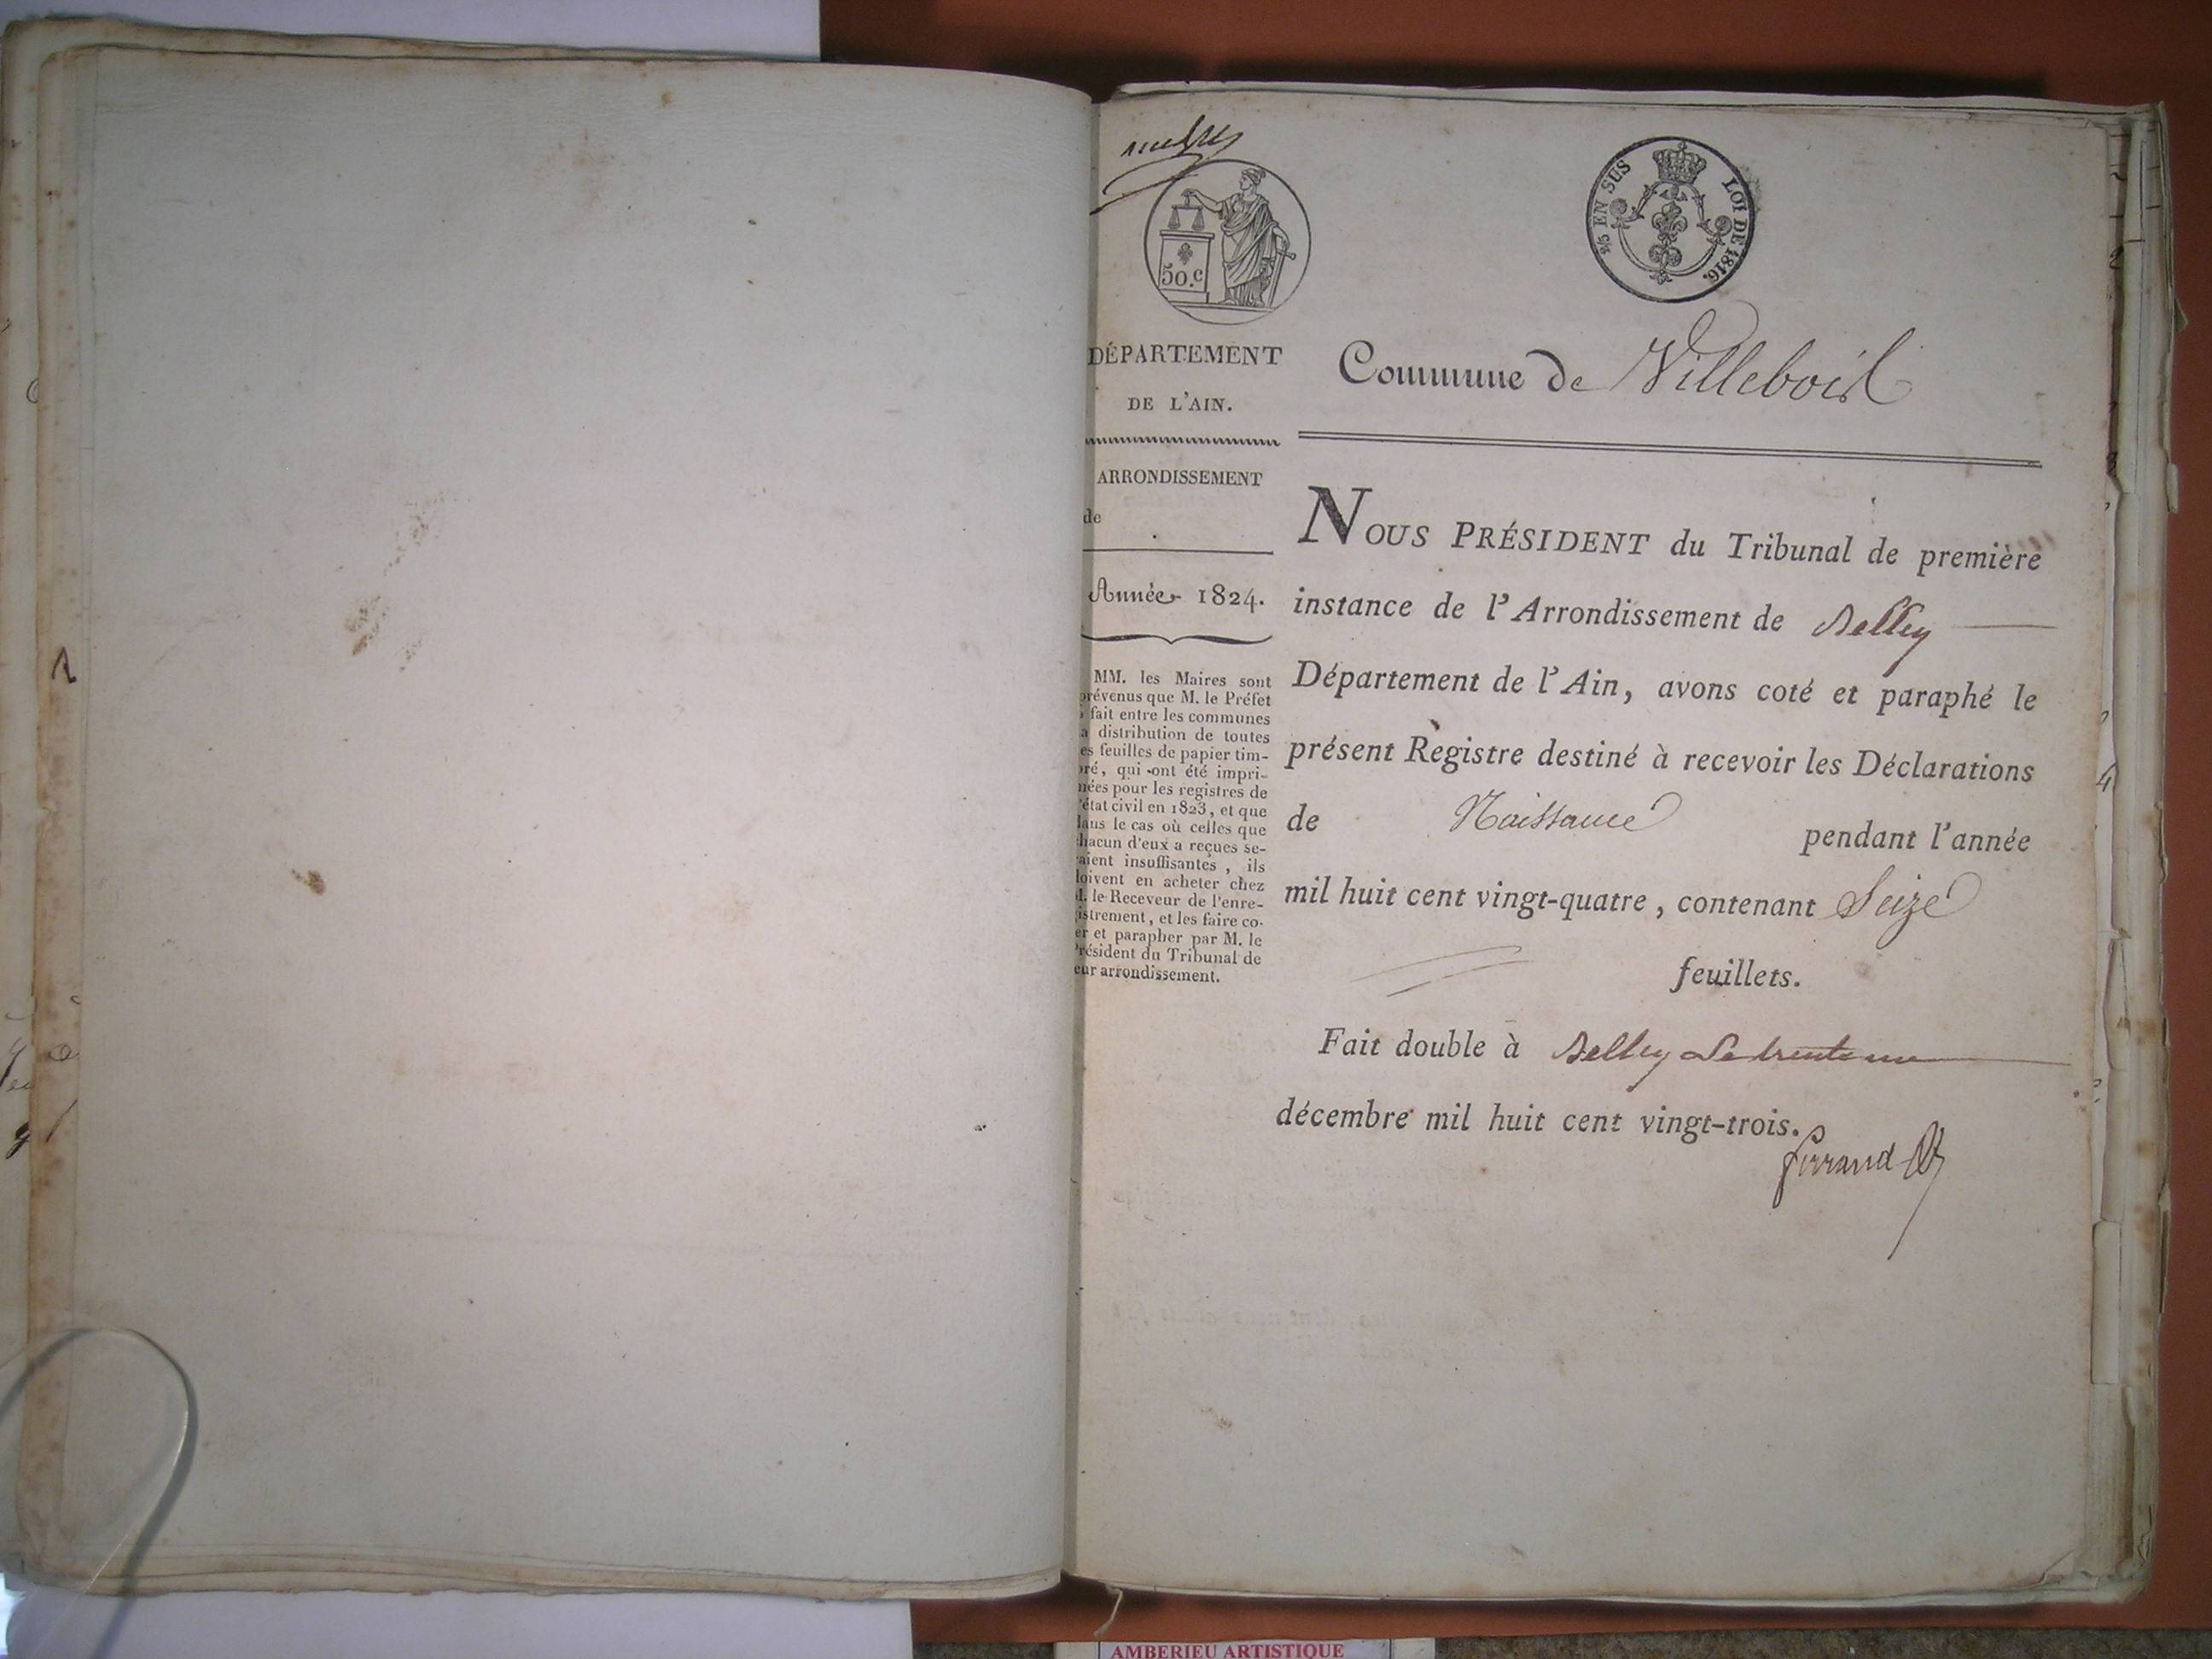 50.c
2/5 EN SUS LOI DE 1816.
DÉPARTEMENT
DE L'AIN.
ARRONDISSEMENT
de
Année 1824.
MM. les Maires sont
prévenus que M. le Préfet
fait entre les communes
distribution de toutes
es feuilles de papier tim-
ré, qui ont été impri-
ées pour les registres de
'état civil en 1823, et que
ans le cas où celles que
hacun d'eux a reçues se-
aient insuffisantes, ils
oivent en acheter chez
. le Receveur de l'enre-
istrement, et les faire co-
er et parapher par M. le
Président du Tribunal de
eur arrondissement.
Commune de Villebois
NOUS PRÉSIDENT du Tribunal de première
instance de l'Arrondissement de Belley
Département de l'Ain, avons coté et paraphé le
présent Registre destiné à recevoir les Déclarations
de Naissance pendant l'année
mil huit cent vingt-quatre, contenant Seize
feuillets.
Fait double à Belley Le trente un
décembre mil huit cent vingt-trois.
AMBERIEU ARTISTIQUE